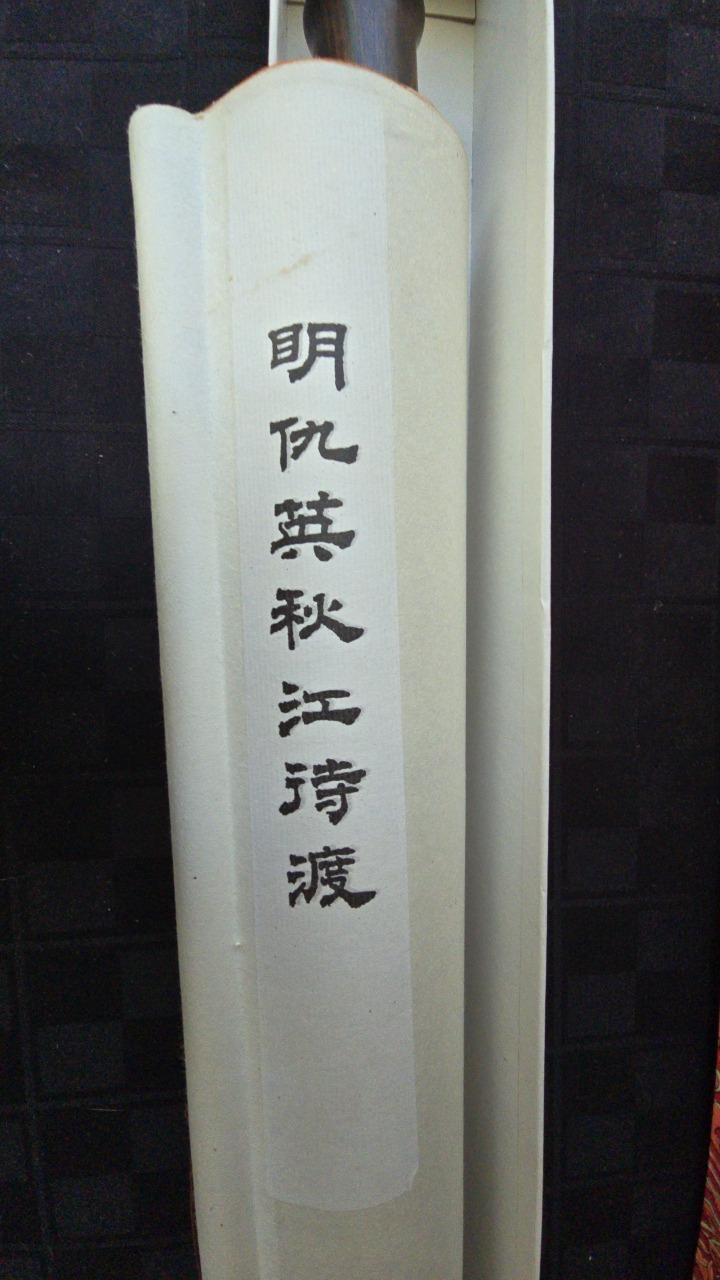 明仇英秋江待渡